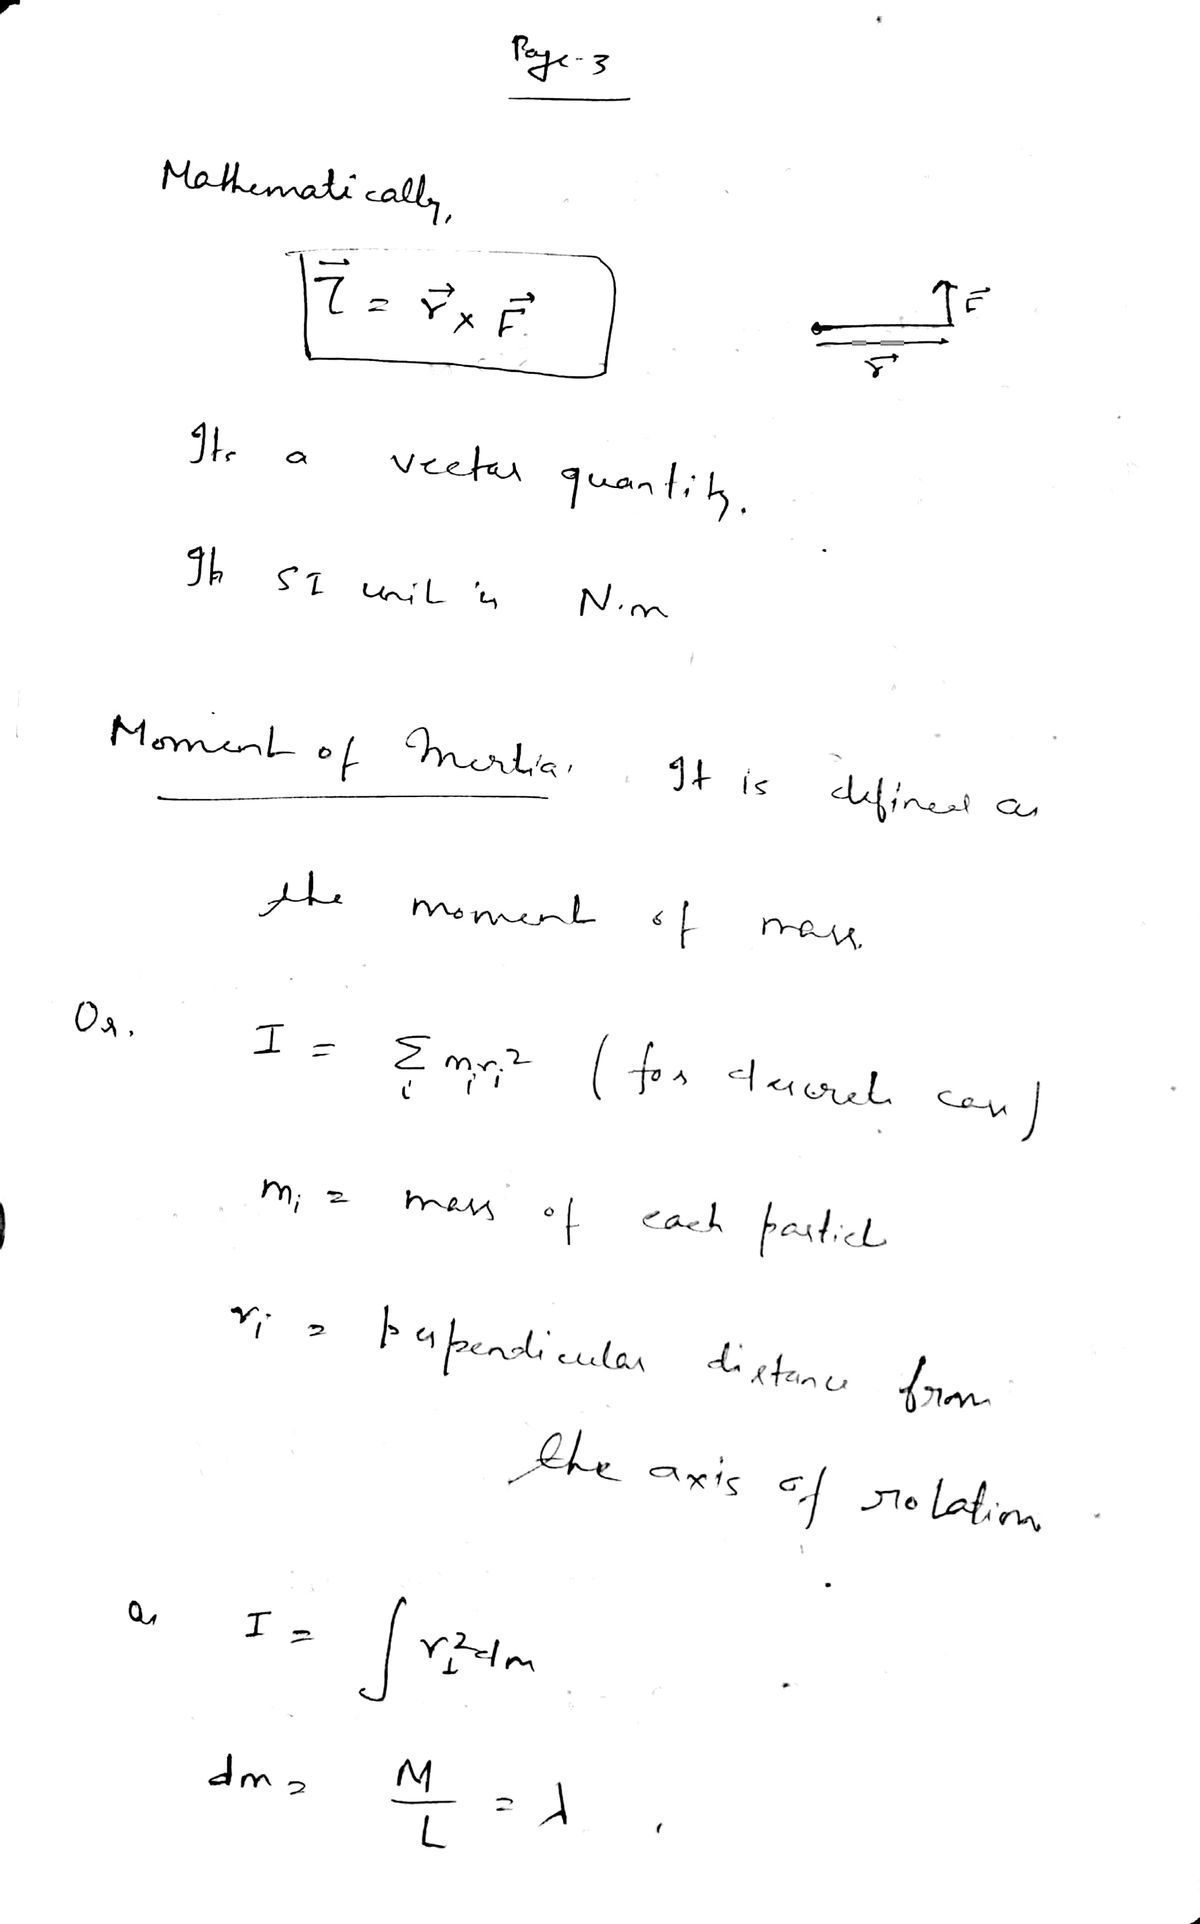 Page-3
Mathematically,
$\vec{\tau} = \vec{r} \times \vec{F}$
$\vec{F}$
$\vec{r}$
Its a vector quantity.
Its SI unit is N.m
Moment of Inertia. It is defined as
the moment of mass.
Or. $I = \sum_i m_i r_i^2$ (for discrete case)
$m_i$ = mass of each particle
$r_i$ = perpendicular distance from
the axis of rotation
or $I = \int r_\perp^2 dm$
$dm = \frac{M}{L} = \lambda$.